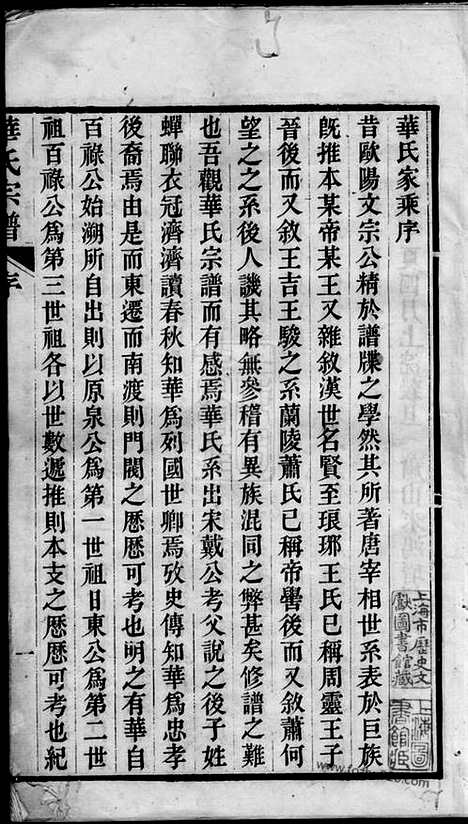 華氏家乘序
昔歐陽文宗公精於譜牒之學然其所著唐宰相世系表於巨族
旣推本某帝某王又雜敘漢世名賢至琅琊王氏已稱周靈王子
晉後而又敘王吉王駿之系蘭陵蕭氏已稱帝嚳後而又敘蕭何
望之之系後人譏其略無參稽有異族混同之弊甚矣修譜之難
也吾觀華氏宗譜而有感焉華氏系出宋戴公考父說之後子姓
蟬聯衣冠濟濟讀春秋知華爲列國世卿焉攷史傳知華爲忠孝
後裔焉由是而東遷而南渡則門閥之歷歷可考也明之有華自
百祿公始溯所自出則以原泉公爲第一世祖日東公爲第二世
祖百祿公爲第三世祖各以世數遞推則本支之歷歷可考也紀
華氏宗譜 序
上海市歷史文
獻圖書館藏
上海圖
書館藏